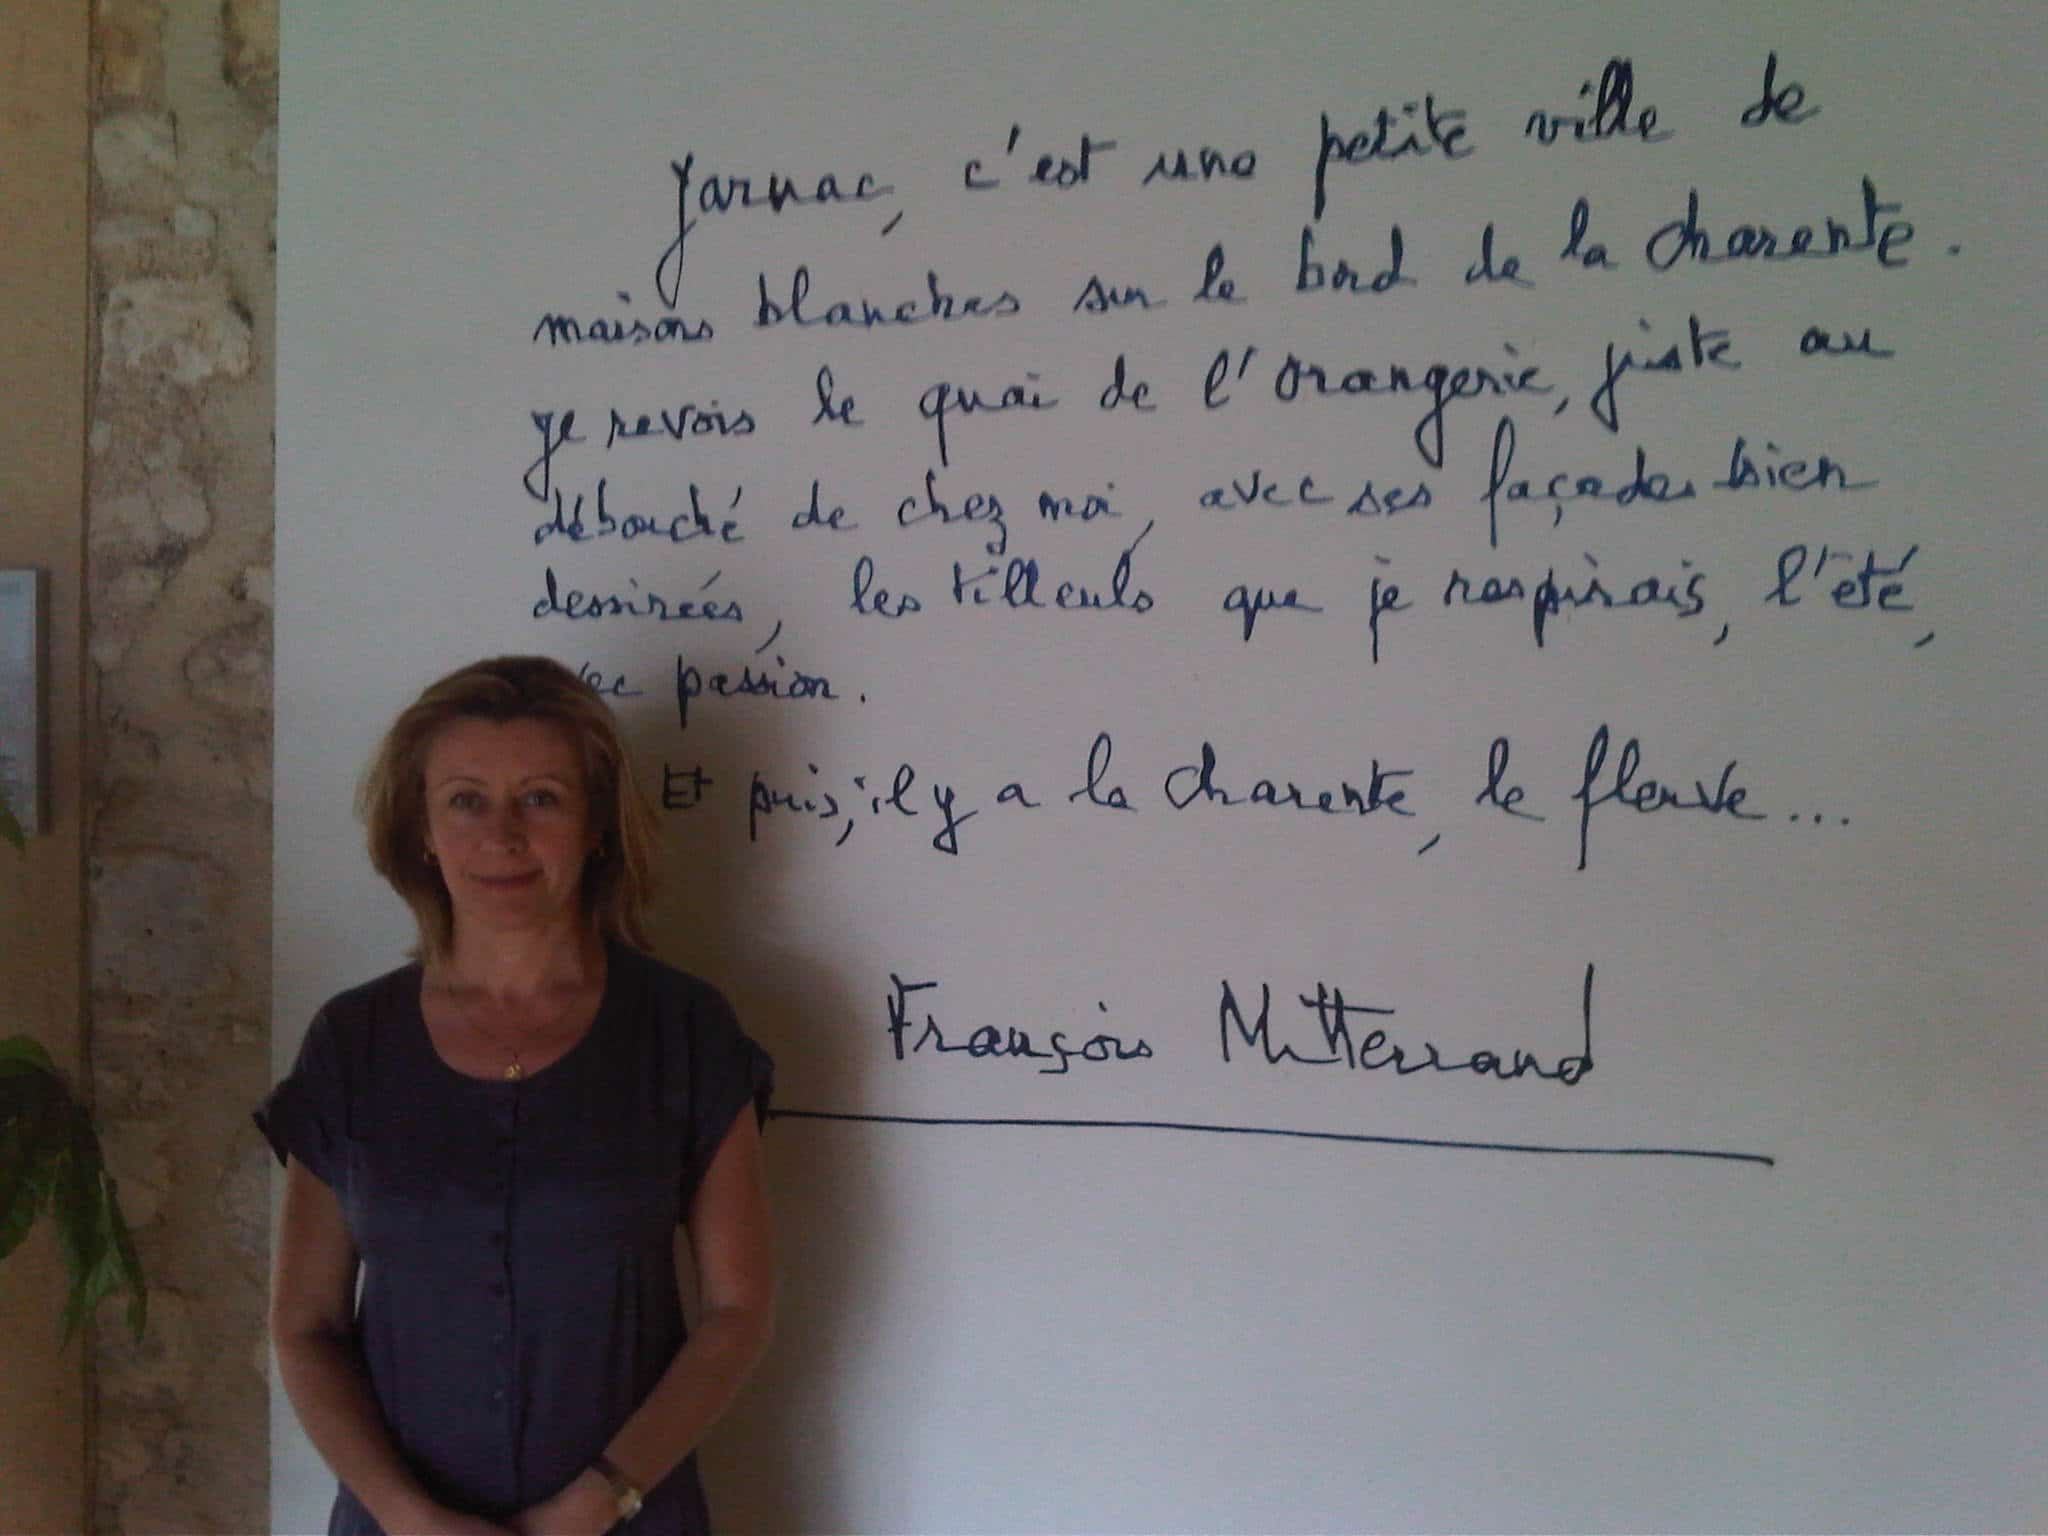 Jarnac, c'est une petite ville de
maisons blanches sur le bord de la Charente.
Je revois le quai de l'Orangerie, juste au
débouché de chez moi, avec ses façades bien
dessinées, les tilleuls que je respirais, l'été,
passion.
Et puis, il y a la Charente, le fleuve...
François Mitterrand